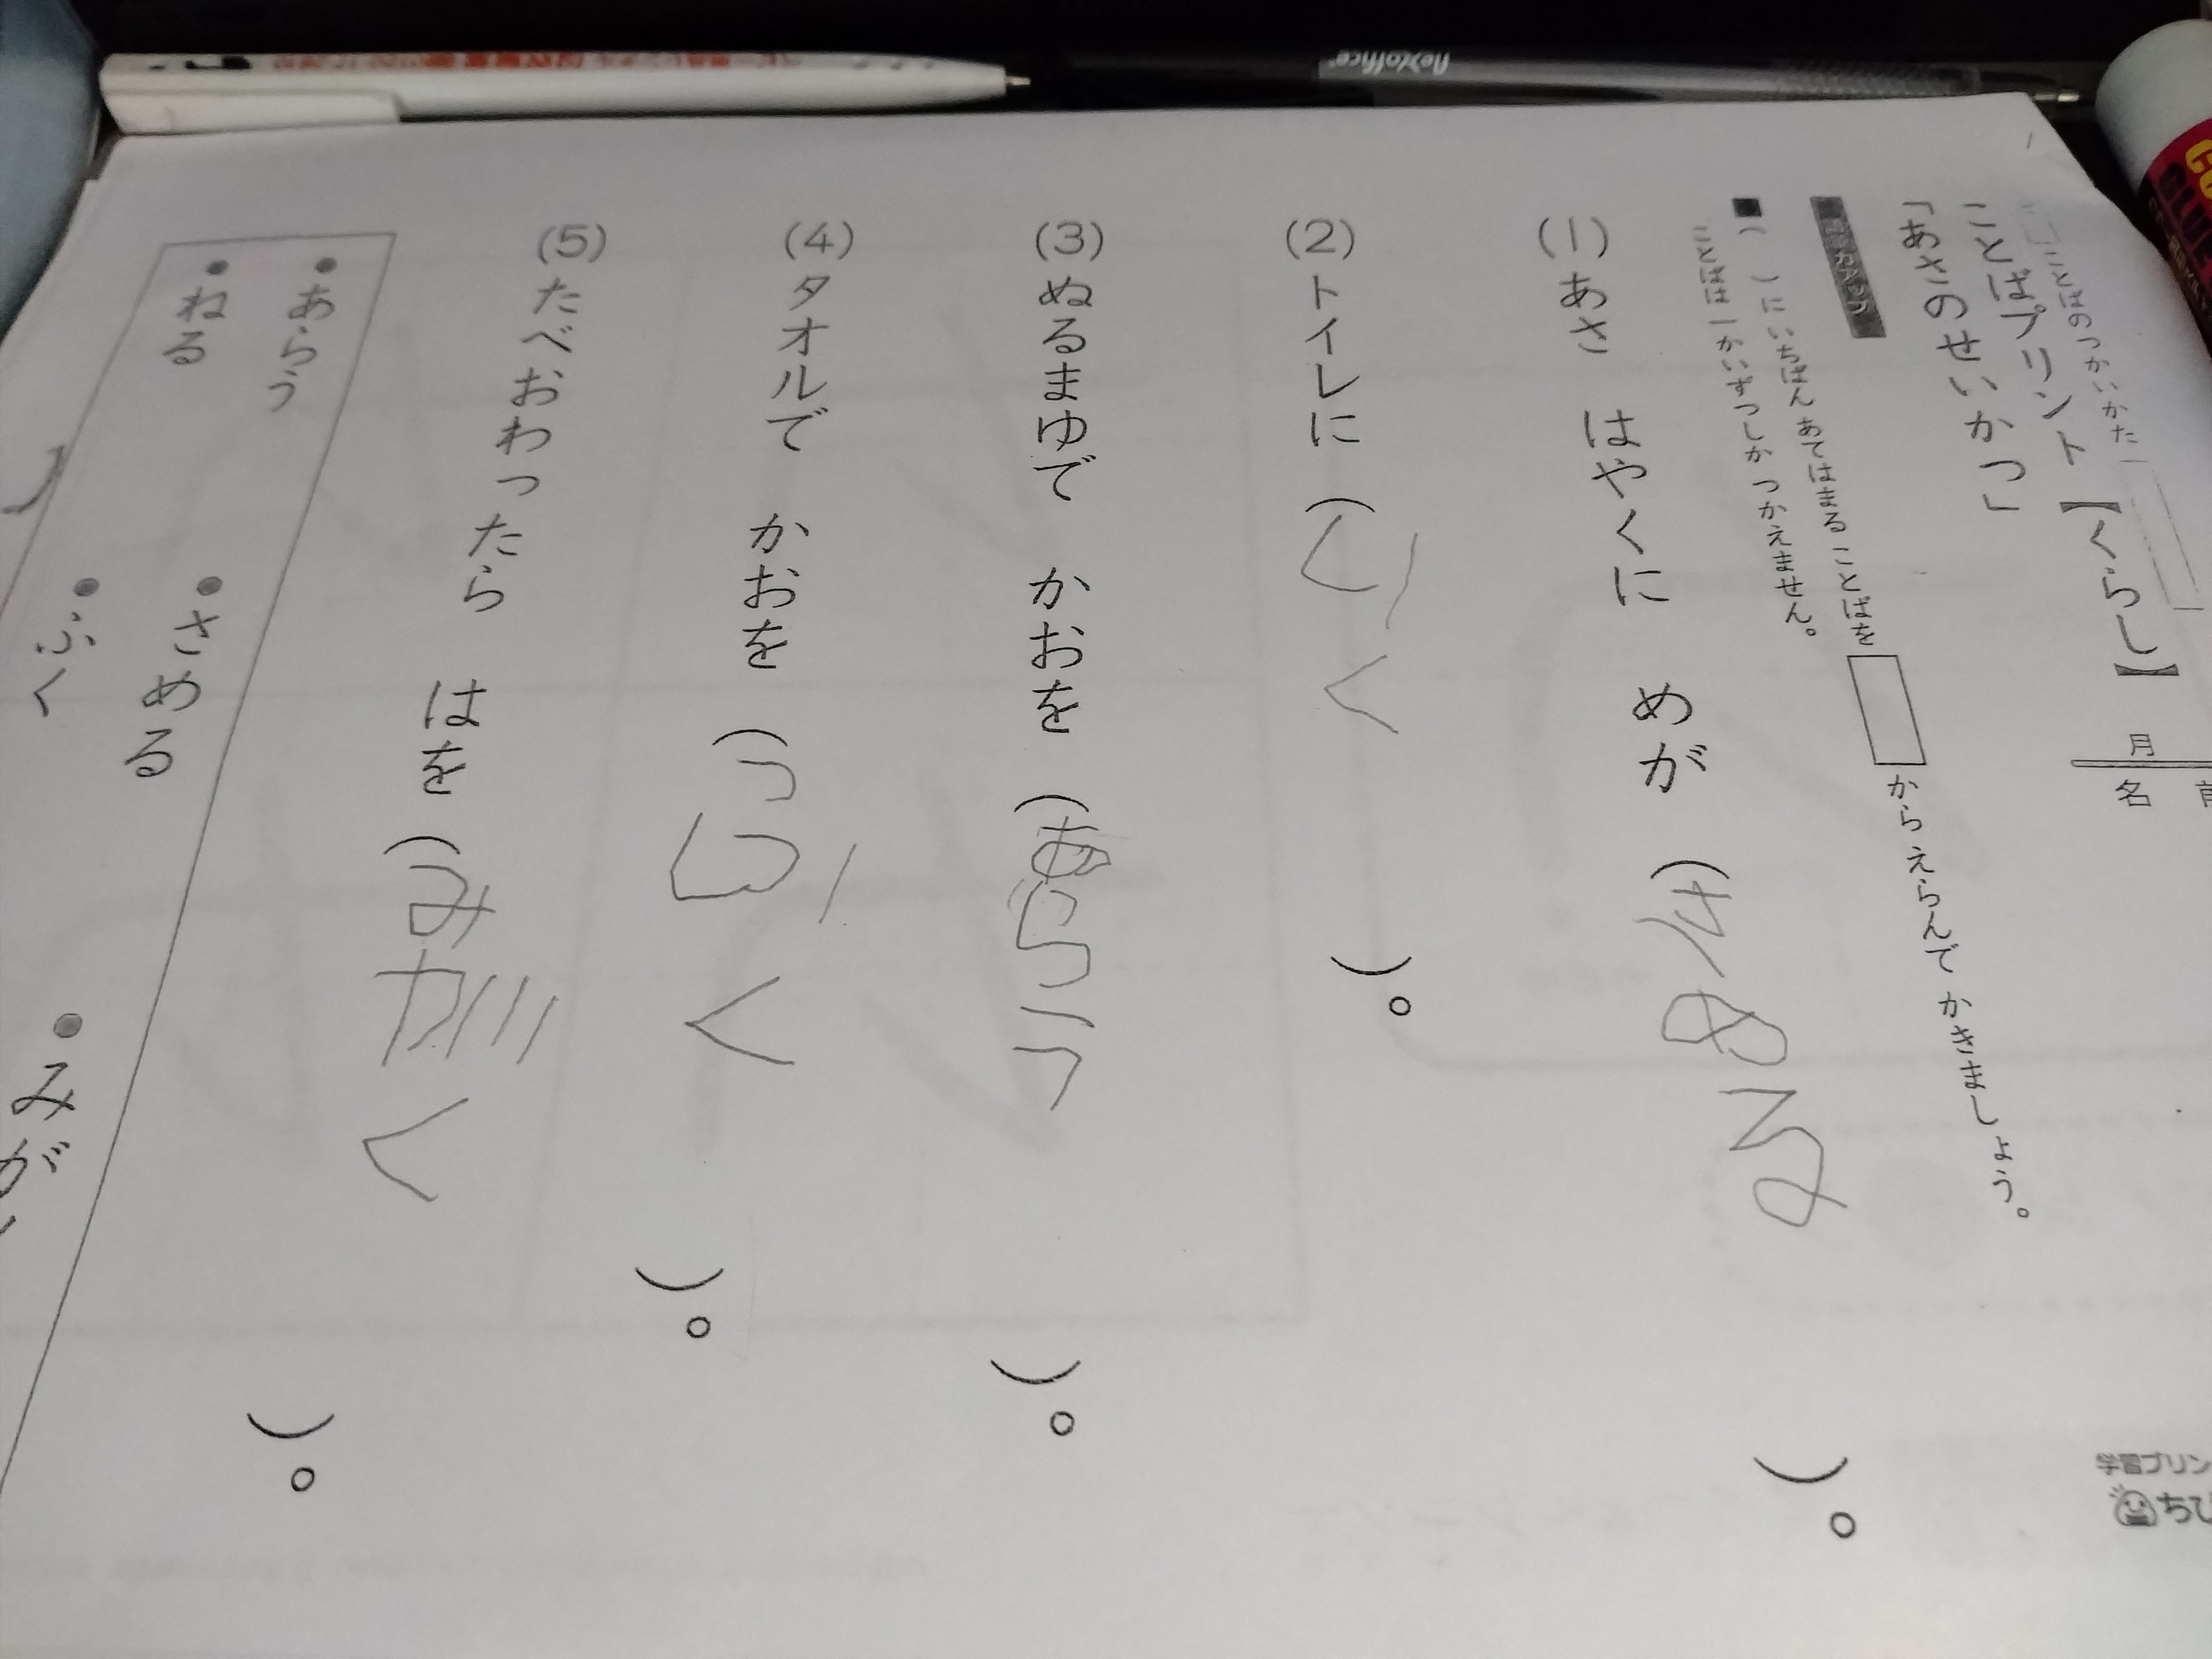 ことばのつかいかた
ことばプリント【くらし】
「あさのせいかつ」
月
名前
■（　）にいちばん あてはまる ことばを □ からえらんで かきましょう。
ことばは 一かいずつしか つかえません。
(1) あさ はやくに めが （さめる）。
(2) トイレに （いく）。
(3) ぬるまゆで かおを （あらう）。
(4) タオルで かおを （ふく）。
(5) たべおわったら はを （みがく）。
●あらう ●さめる
●ねる ●ふく ●みが
学習プリン
ちび
flexoffice